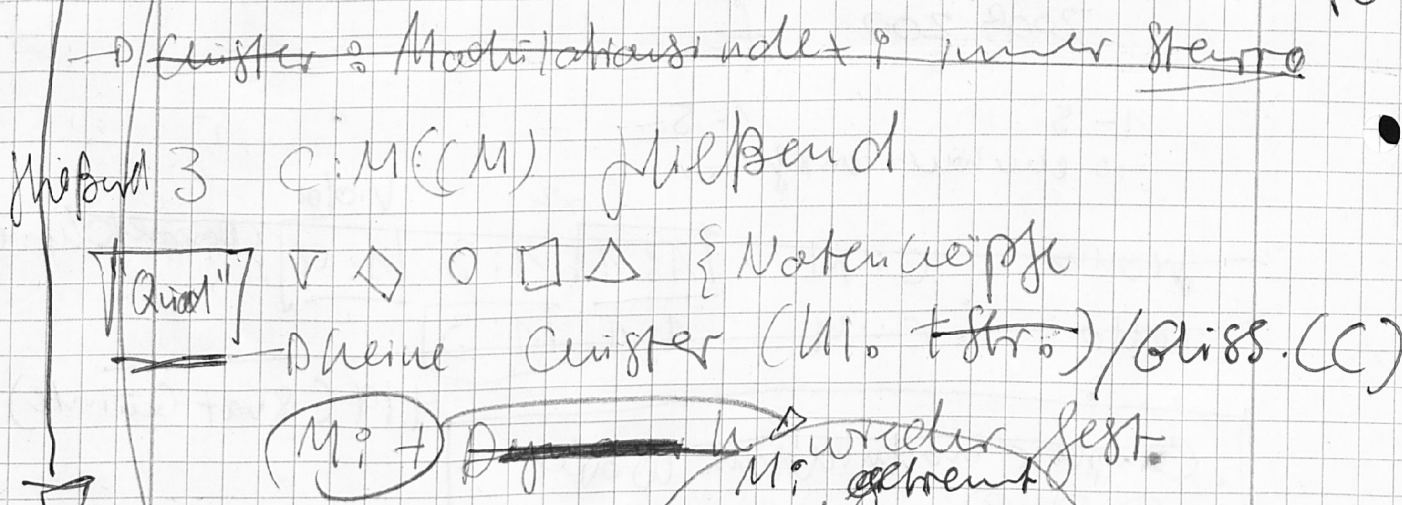 Cluster: Modulationsindex: immer starr
fließend 3 C:M(CM) fließend
"Quad" Notenköpfe
keine Cluster (Kl. + Str.) / Gliss. (C)
Mi + wieder fest.
Mi getrennt